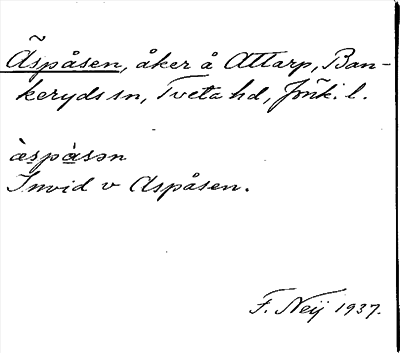 Äspåsen, åker å Attarp, Ban-
keryds sn, Tveta hd, Jönk. l.
æ̀spå̀sən
Invid v Aspåsen.
F. Neij 1937.